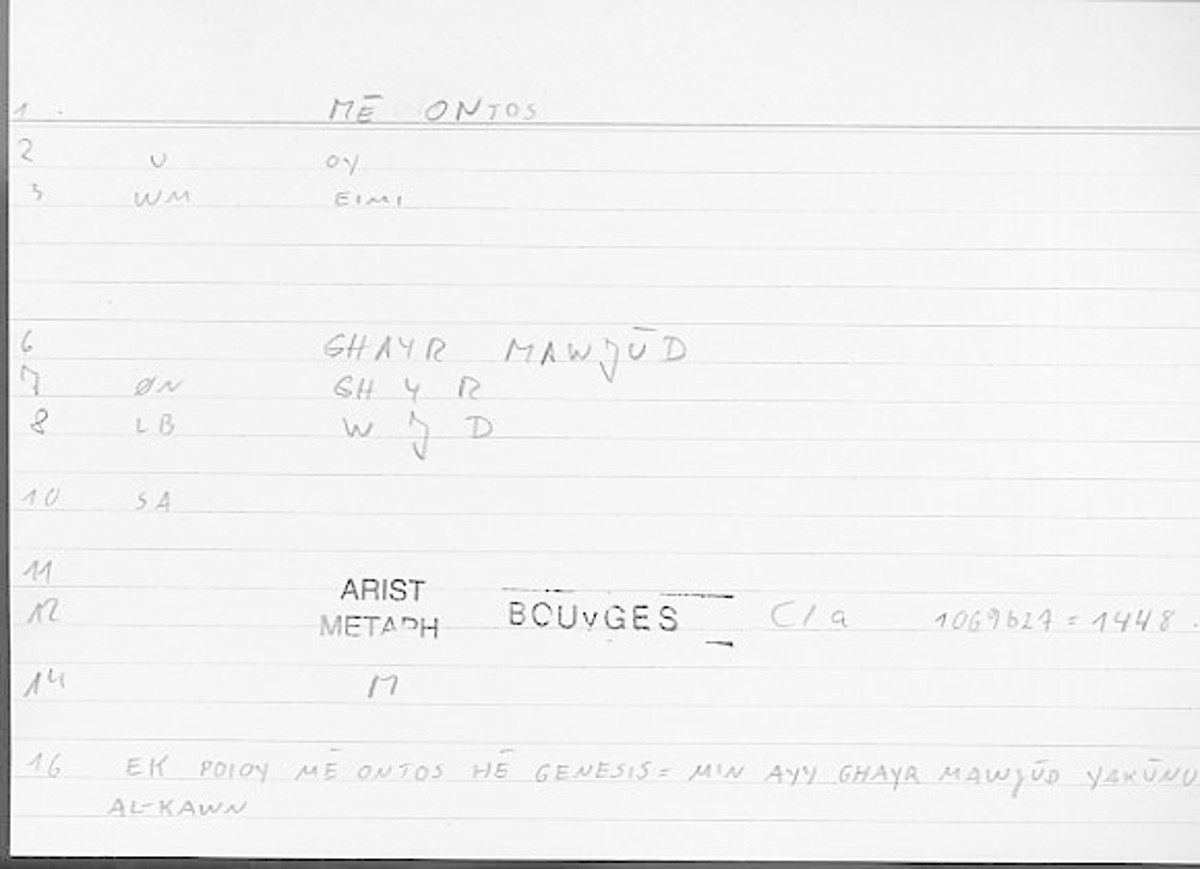 1. MĒ ONTOS
2 U OY
3 WM EIMI
6 GHAYR MAWJŪD
7 ØN GH Y R
8 LB W J D
10 SA
11
12 ARIST METAPH BOUYGES C/a 1069b27 = 1448.
14 M
16 EK POIOY MĒ ONTOS HĒ GENESIS = MIN AYY GHAYR MAWJŪD YAKŪNU
AL-KAWN